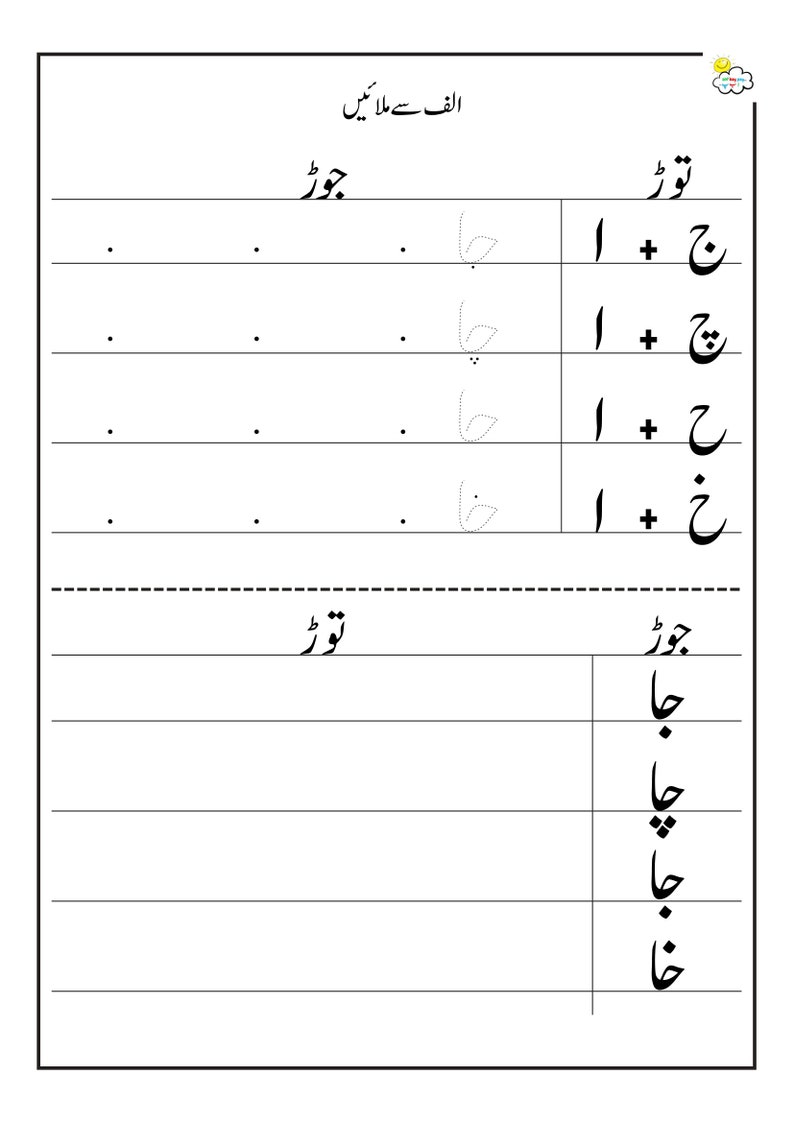 الف سے ملائیں
توڑ جوڑ
ج + ا جا . . .
چ + ا چا . . .
ح + ا حا . . .
خ + ا خا . . .
جوڑ توڑ
جا
چا
جا
خا